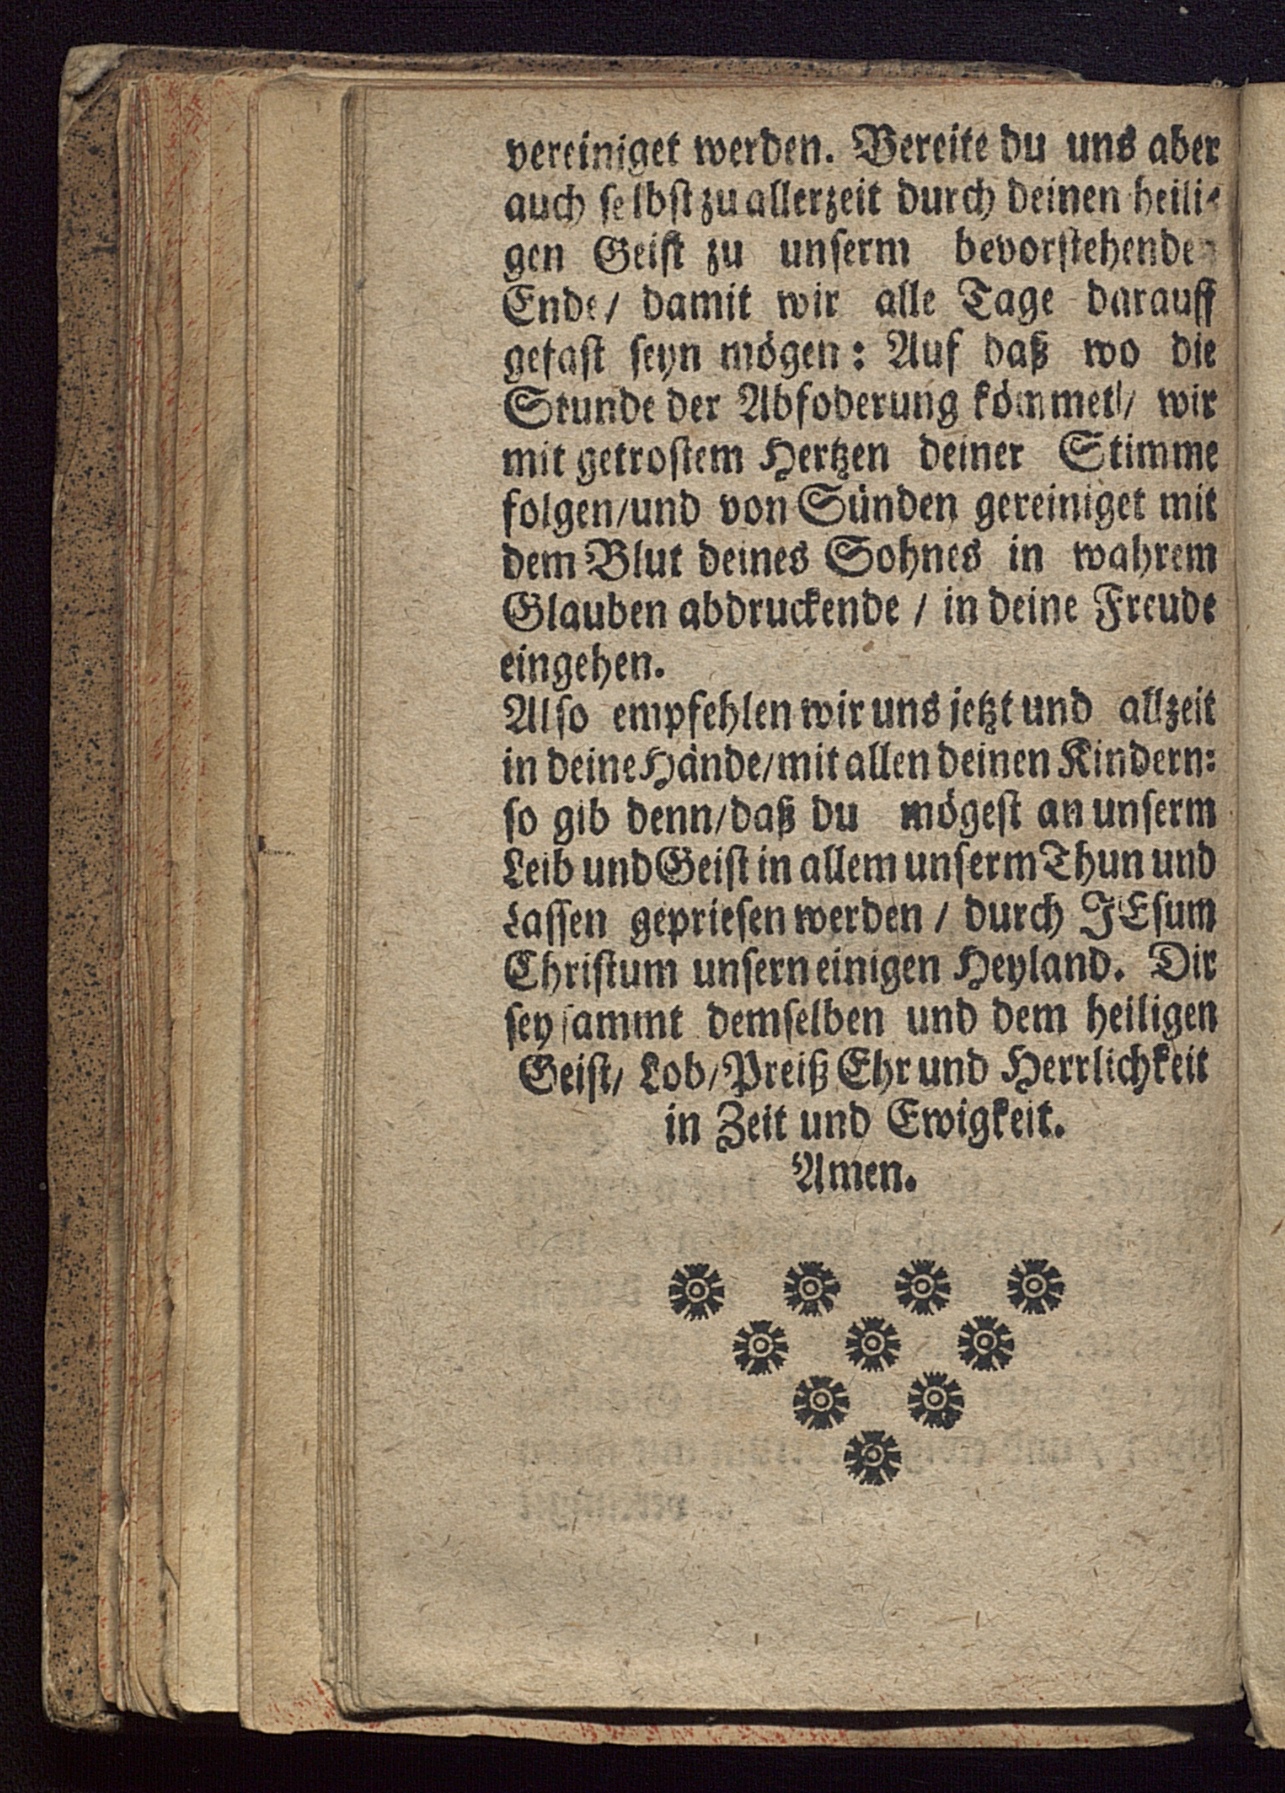 vereiniget werden. Bereite du uns aber
auch selbst zu allerzeit durch deinen heili-
gen Geist zu unserm bevorstehenden
Ende/ damit wir alle Tage darauff
gefast seyn mögen: Auf daß wo die
Stunde der Abfoderung kömmet/ wir
mit getrostem Hertzen deiner Stimme
folgen/und von Sünden gereiniget mit
dem Blut deines Sohnes in wahrem
Glauben abdruckende / in deine Freude
eingehen.
Also empfehlen wir uns jetzt und allzeit
in deine Hände/mit allen deinen Kindern:
so gib denn/daß du mögest an unserm
Leib und Geist in allem unserm Thun und
Lassen gepriesen werden / durch JEsum
Christum unsern einigen Heyland. Dir
sey sammt demselben und dem heiligen
Geist/ Lob/Preiß Ehr und Herrlichkeit
in Zeit und Ewigkeit.
Amen.